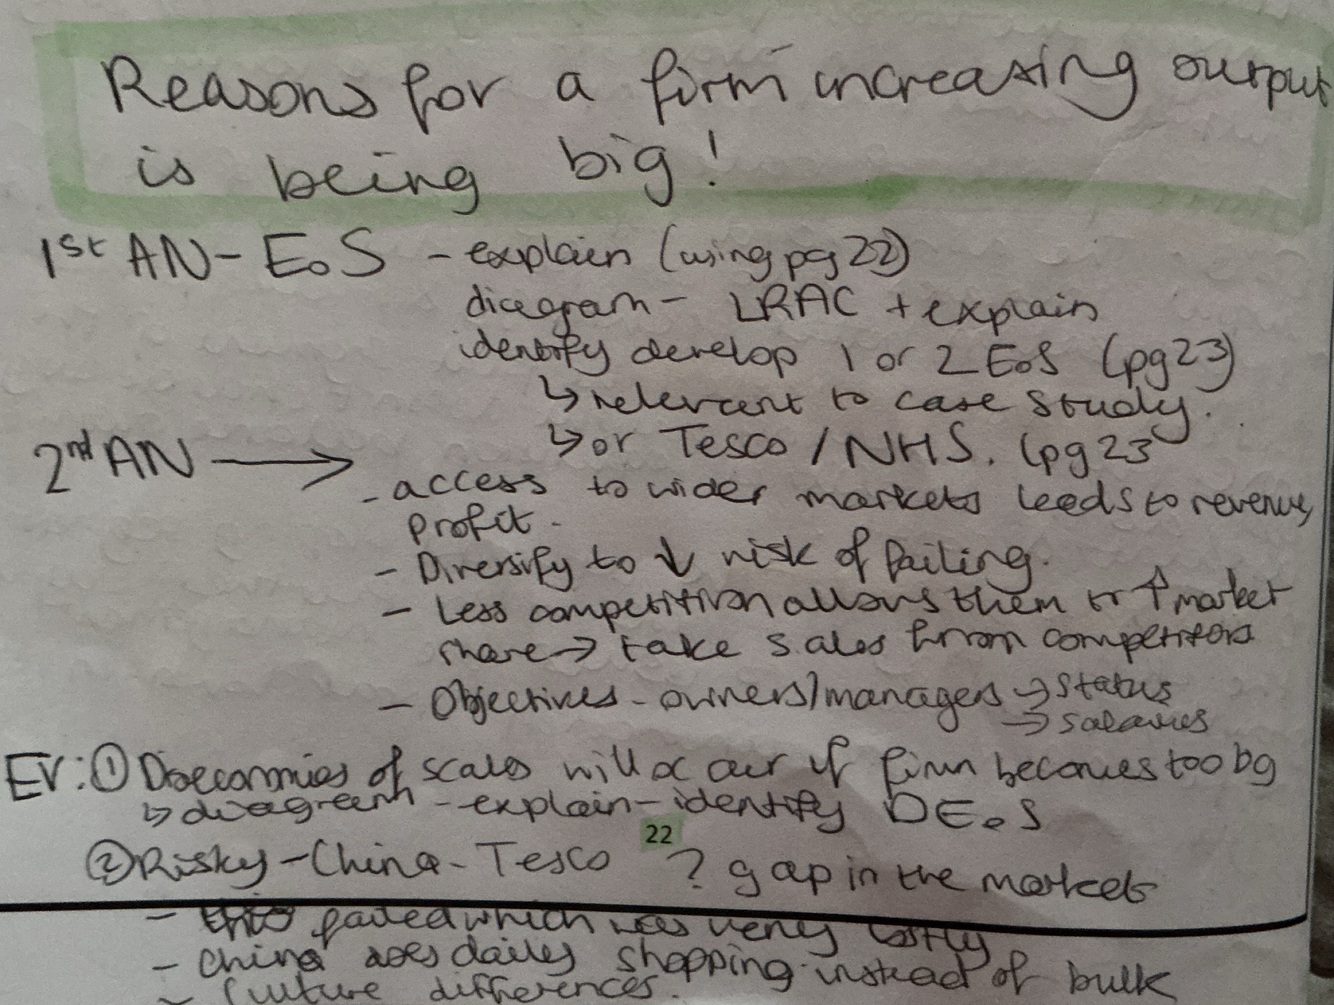 Reasons for a firm increasing output
is being big!
1st AN - EoS - explain (using pg 22)
diagram - LRAC + explain
identify develop 1 or 2 EoS (pg23)
↳ relevant to case study.
↳ or Tesco / NHS. (pg 23
2nd AN →
- access to wider markets leads to revenue,
profit.
- Diversify to ↓ risk of failing.
- Less competition allows them to ↑ market
share → take sales from competitors
- Objectives - owners/managers → status
→ salaries
EV: ① Diseconomies of scales will occur if firm becomes too big
↳ diagram - explain - identify DEoS
22
② Risky - China - Tesco ? gap in the markets
- failed which was very costly
- China does daily shopping instead of bulk
- Culture differences.